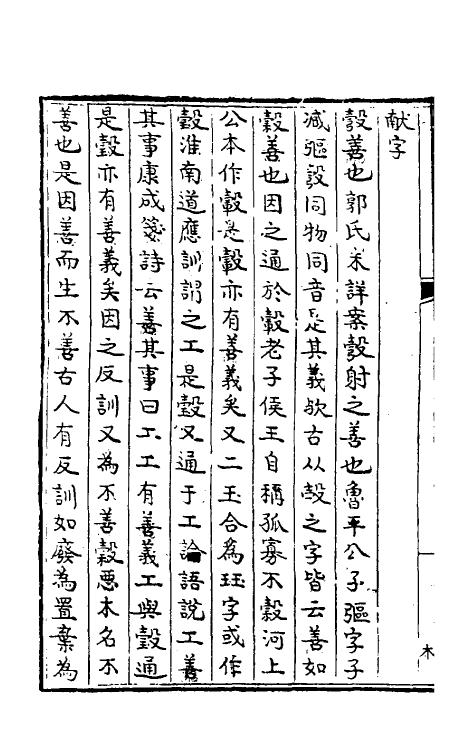 献字
彀善也郭氏未詳案彀射之善也魯平公子彄字子
減彄彀同物同音是其義欤古从㱿之字皆云善如
穀善也因之通於彀老子侯王自稱孤寡不穀河上
公本作轂是轂亦有善義矣又二玉合為珏字或作
瑴淮南道應訓謂之工是瑴又通于工論語說工善
其事康成箋詩云善其事曰工工有善義工與瑴通
是瑴亦有善義矣因之反訓又為不善榖惡木名不
善也是因善而生不善古人有反訓如廢為置棄為
木